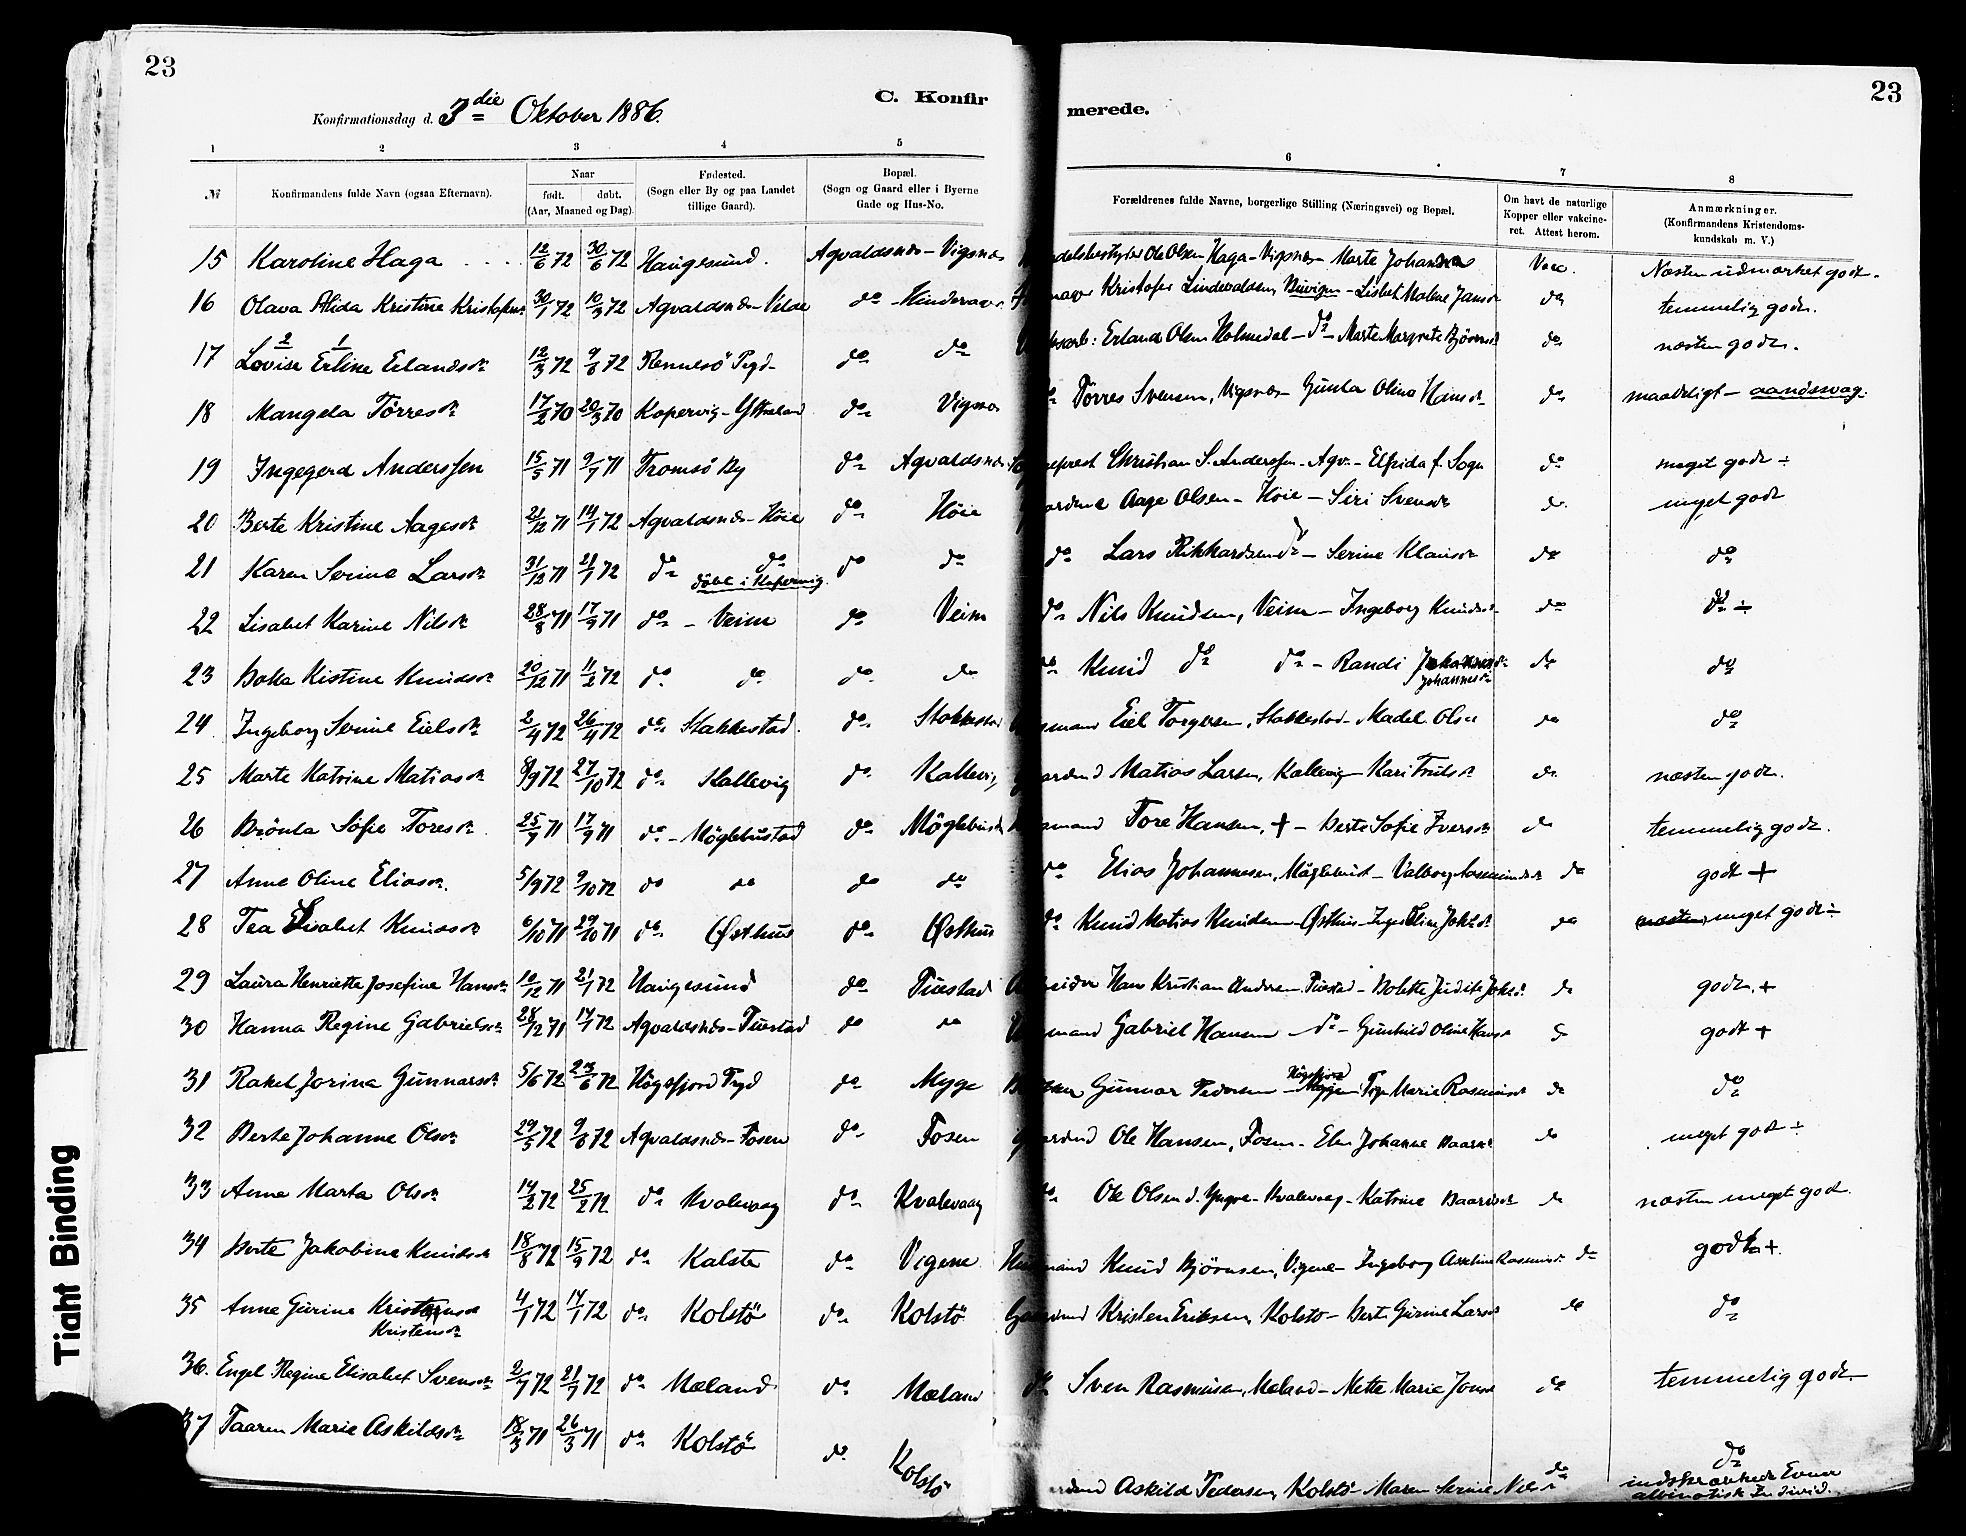 23
23
C. Konfir merede.
Konfirmationsdag d. 3die Oktober 1886.
1 2 3 4 5 6 7 8
№ Konfirmandens fulde Navn (ogsaa Efternavn). Naar født. døbt. (Aar, Maaned og Dag) Fødested. (Sogn eller By og paa Landet tillige Gaard). Bopæl. (Sogn og Gaard eller i Byerne Gade og Hus-No. Forældrenes fulde Navne, borgerlige Stilling (Næringsvei) og Bopæl. Om havt de naturlige Kopper eller vakcineret. Attest herom. Anmærkninger. (Konfirmandens Kristendomskundskab m. V.)
15 Karoline Haga 12/6 72 30/6 72 Haugesund. Agvaldsnæs - Vigsnæs Ole Olsen Haga - Vigsnæs - Marte Johan Vacc. Næsten udmærket godt.
16 Olava Alida Kristine Kristofers 30/1 72 10/3 72 Agvaldsnæs - Velde do - Hinderaa Kristofer Lindevaldsen, - Lisbet Malene Jans do temmelig godt.
17 Lovise Erline Erlandsdr 2 1 12/3 72 9/6 72 Rennesö Prgd do do Erland Olsen Holmedal - do - Marte Margrete Bjørns do næsten godt.
18 Mangela Törresdr 17/2 70 20/3 70 Kopervig - do Vigsnæs do Törres Svensen, Vigsnæs - Gunla Olina Hansdr do maadeligt - aandssvag.
19 Ingegerd Anderssen 15/5 71 9/7 71 Tromsö By do Agvaldsnæs Sogneprest Christian S. Anderssen - Agv. - Elfrida f. Sogn do meget godt ÷
20 Berte Kristine Aagesdr 21/12 71 14/1 72 Agvaldsnæs - Höie do Höie Aage Olsen - Höie - Siri Svensdr do meget godt
21 Karen Serine Larsdr 31/12 71 21/1 72 do do döbt i Kopervig. do do do Lars Rikkardsen do - Serine Klausdr do do
22 Lisabet Karine Nilsdr 28/8 71 17/9 71 do - Veim do Veim do Nils Knudsen, Veim - Ingeborg Knudsdr do do ÷
23 Kistine Knudsdr 20/12 71 11/2 72 do do do do do Knud do do - Randi Johannesdr do do
24 Ingeborg Serine Eielsdr 2/4 72 26/4 72 do Stakkestad. do Stakkestad Eiel Torgersen, Stakkestad - Madel Olsdr do do
25 Marte Katrine Matiasdr 8/9 72 27/10 72 do Kallevig do Kallevig Matias Larsen, Kallevig - Kari Trulsdr do næsten godt.
26 Brönla Sofie Toresdr 25/7 71 17/9 71 do - Möglebustad do Möglebust Tore Hansen, + - Berte Sofie Iversdr do temmelig godt.
27 Anne Oline Eliasdr. 5/9 72 9/10 72 do do do do do Elias Johannesen, Möglebust - Valborg do godt +
28 Tea Elisabet Knudsdr 6/10 71 29/10 71 do Østhus do Østhus do Knud Matias Knudsen Østhus - do meget godt ÷
29 Laura Henriette Josefine Hansdr 10/12 71 21/1 72 Haugesund do Tuestad Hans Kristian Andersen Tuestad - Bolette Judite do godt +
30 Hanna Regine Gabrielsdr 28/12 71 14/1 72 Agvaldsnæs - Tuestad do do Gabriel Hansen do - Gunhild Oline Hans do godt +
31 Rakel Jorina Gunnarsdr 5/5 72 23/6 72 Högsfjord Prgd do Myge Gunnar Pedersen Högsfjord Marie Rasmus do do
32 Berte Johanne Olsdr 29/5 72 9/6 72 Agvaldsnæs - Fosen do Fosen Ole Hansen, Fosen - Johanne Baards do meget godt ÷
33 Anne Marta Olsdr 14/2 72 25/2 72 do Kvalevaag do Kvalevaag do Ole Olsen d. Yngre - Kvalevaag - Katrine Baardsdr do næsten meget godt.
34 Berte Jakobine Knudsdr 18/8 72 15/9 72 do Kalstø do Vigene Husmand Knud Bjørnsen, Vigene - Ingeborg Rasmusdr do godt +
35 Anne Gurine Kristensdr 4/1 72 14/1 72 do Kolstö do Kolstö Kristen Eriksen, Kolstö - Berte Gurine Larsdr do do
36. Engel Regine Elisabet Svensdr 2/7 72 21/7 72 do Mæland do Mæland do Sven Rasmusen, Mæland - Mette Marie Jons do temmelig godt.
37 Taaren Marie Askildsdr 18/3 71 26/3 71 do Kolstö do Kolstö Askild Pedersen, Kolstö - Maren Serine Nils do do indskrænkede Evner albinotisk Individ.
Tight Binding